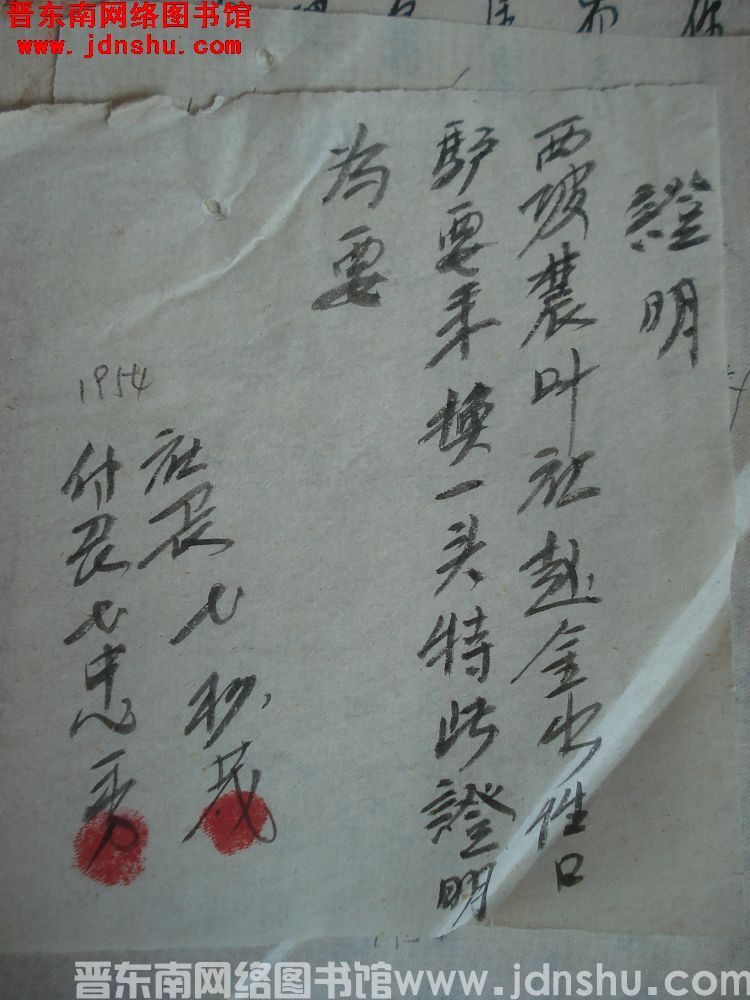 晋东南网络图书馆
www.jdnshu.com
證明
西坡農叶社赵金出性口
驴要来换一头特此證明
为要
社長
付長
1954
晋东南网络图书馆www.jdnshu.com